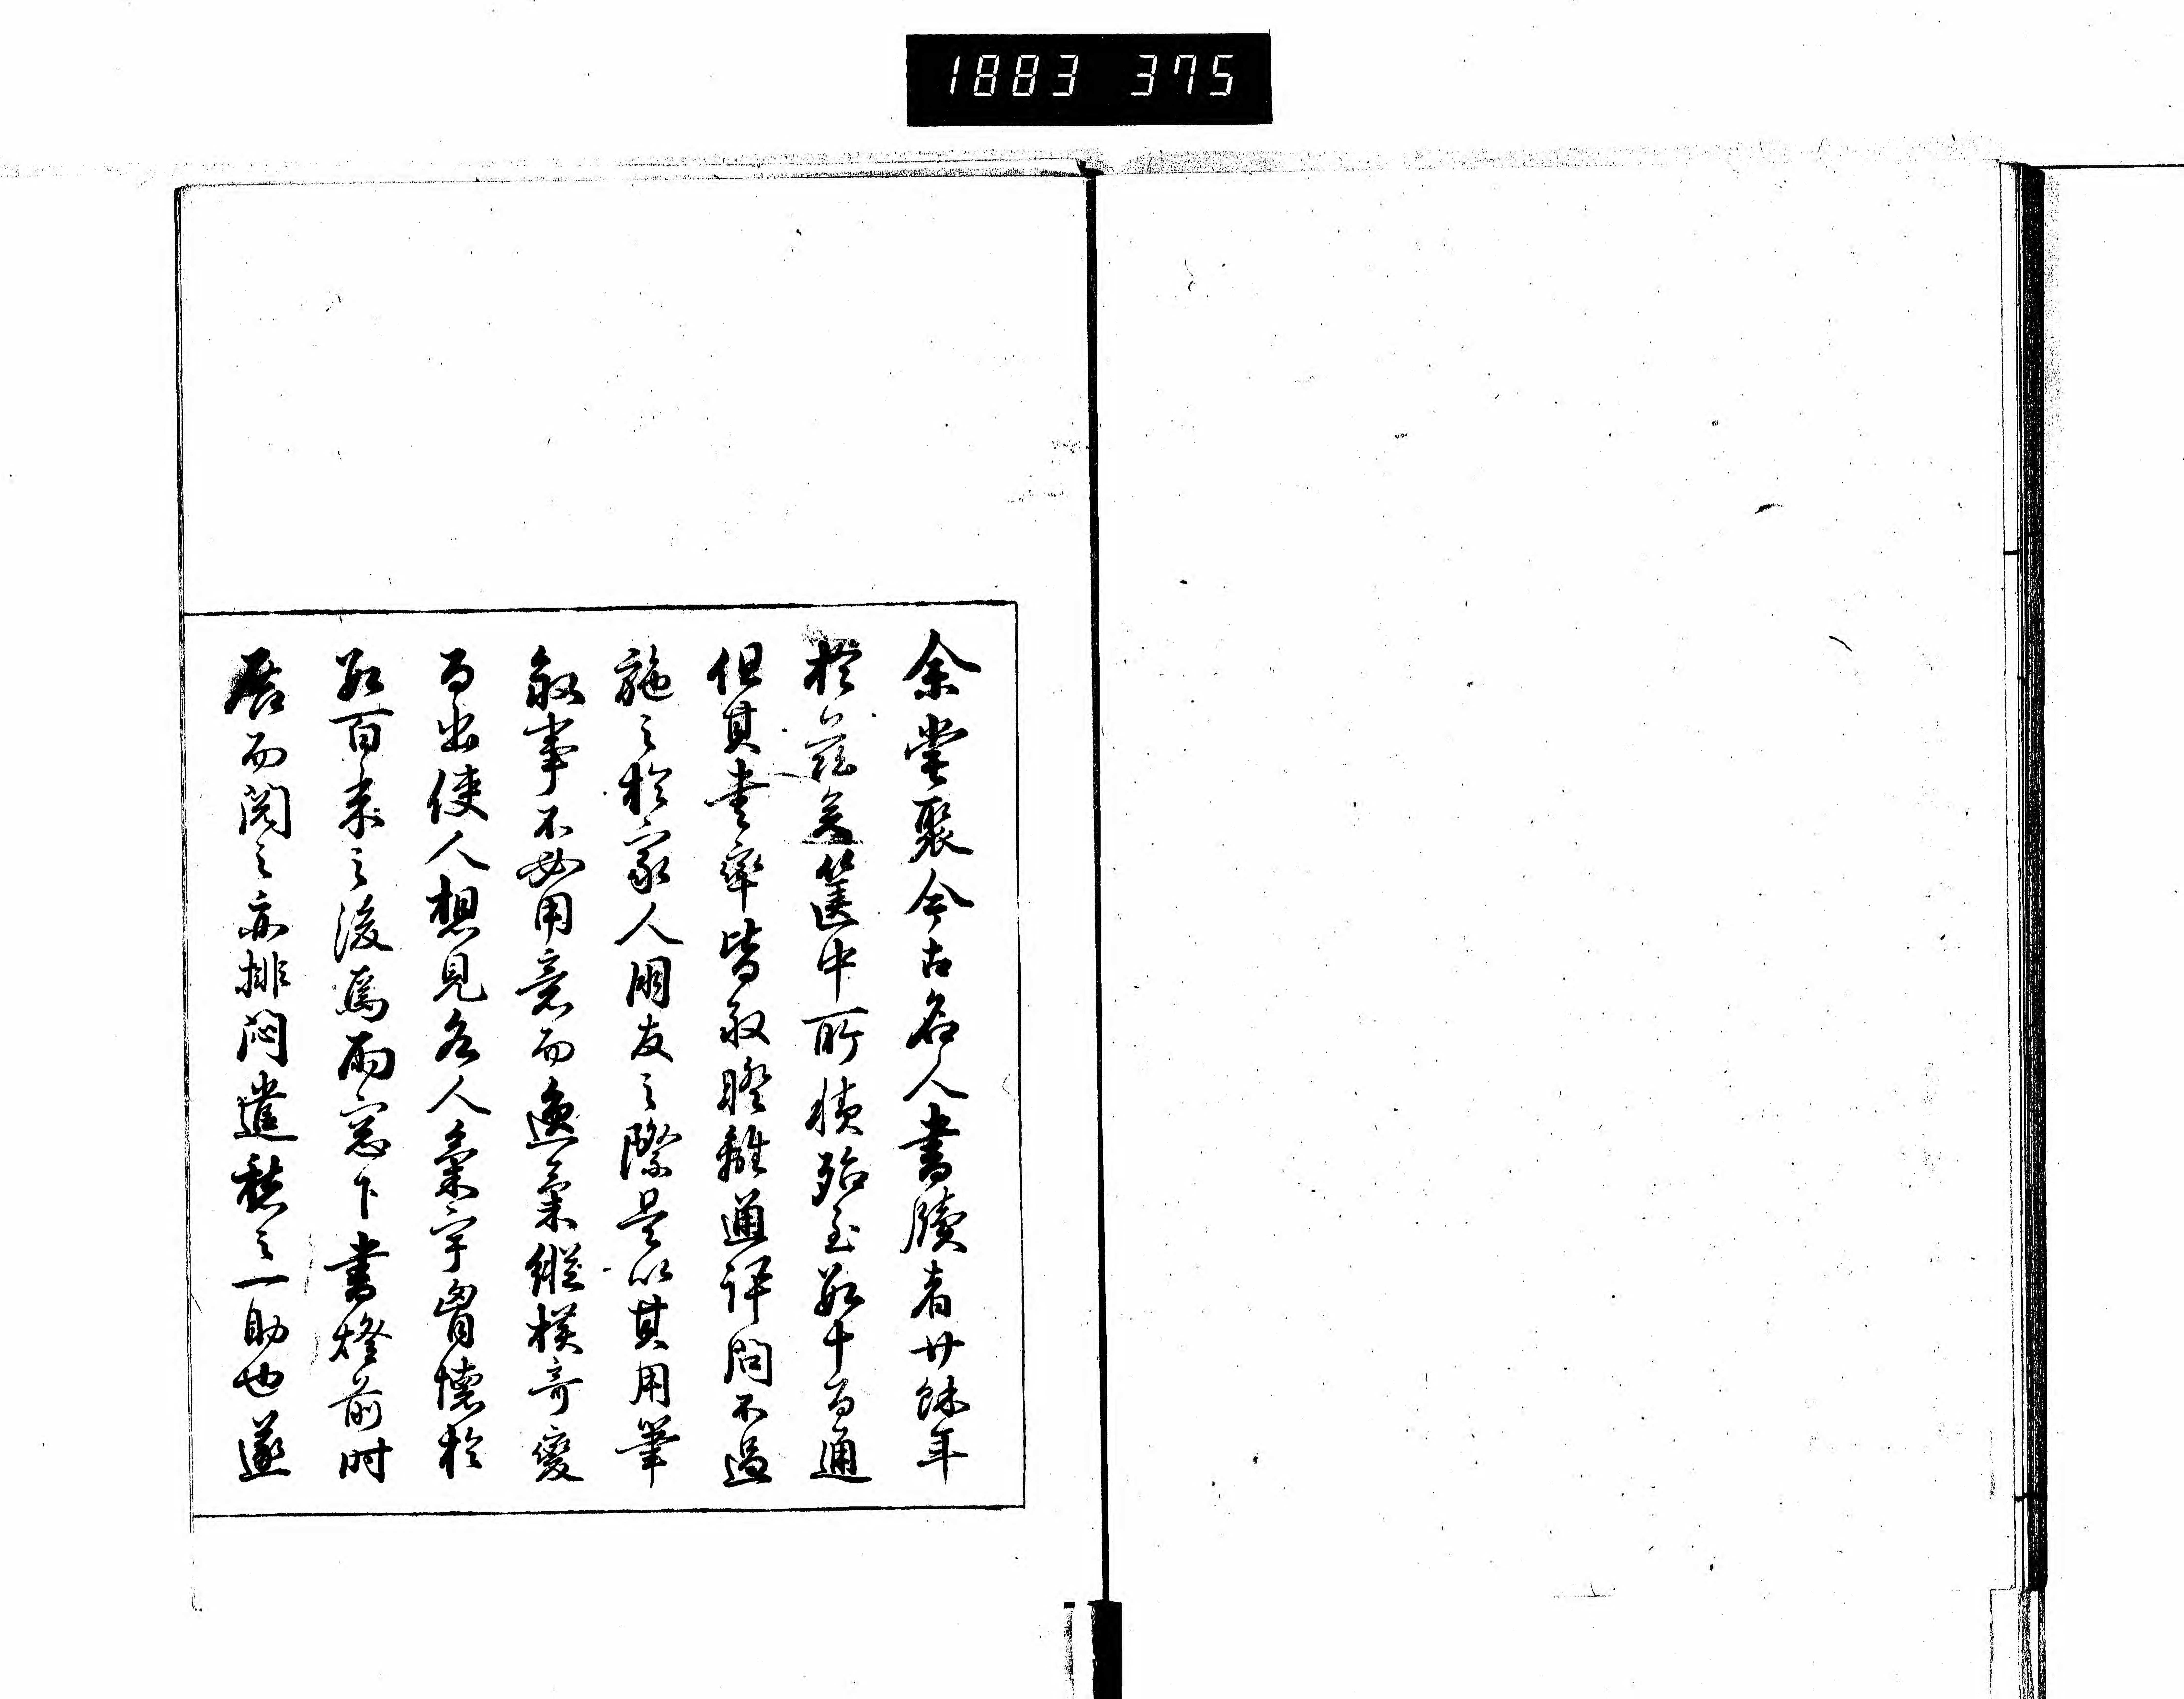 1883 375
余嘗聚今古名人書牘者廿餘年
於茲矣篋中所積殆至數十百通
但其書率皆敘睽離通訊問不過
施之於家人朋友之際是以其用筆
敘事不必用意而逸氣縱橫奇變
百出使人想見名人氣宇胸懷於
數百年之後焉雨窓下書燈前時
展而閱之亦排悶遣愁之一助也遂